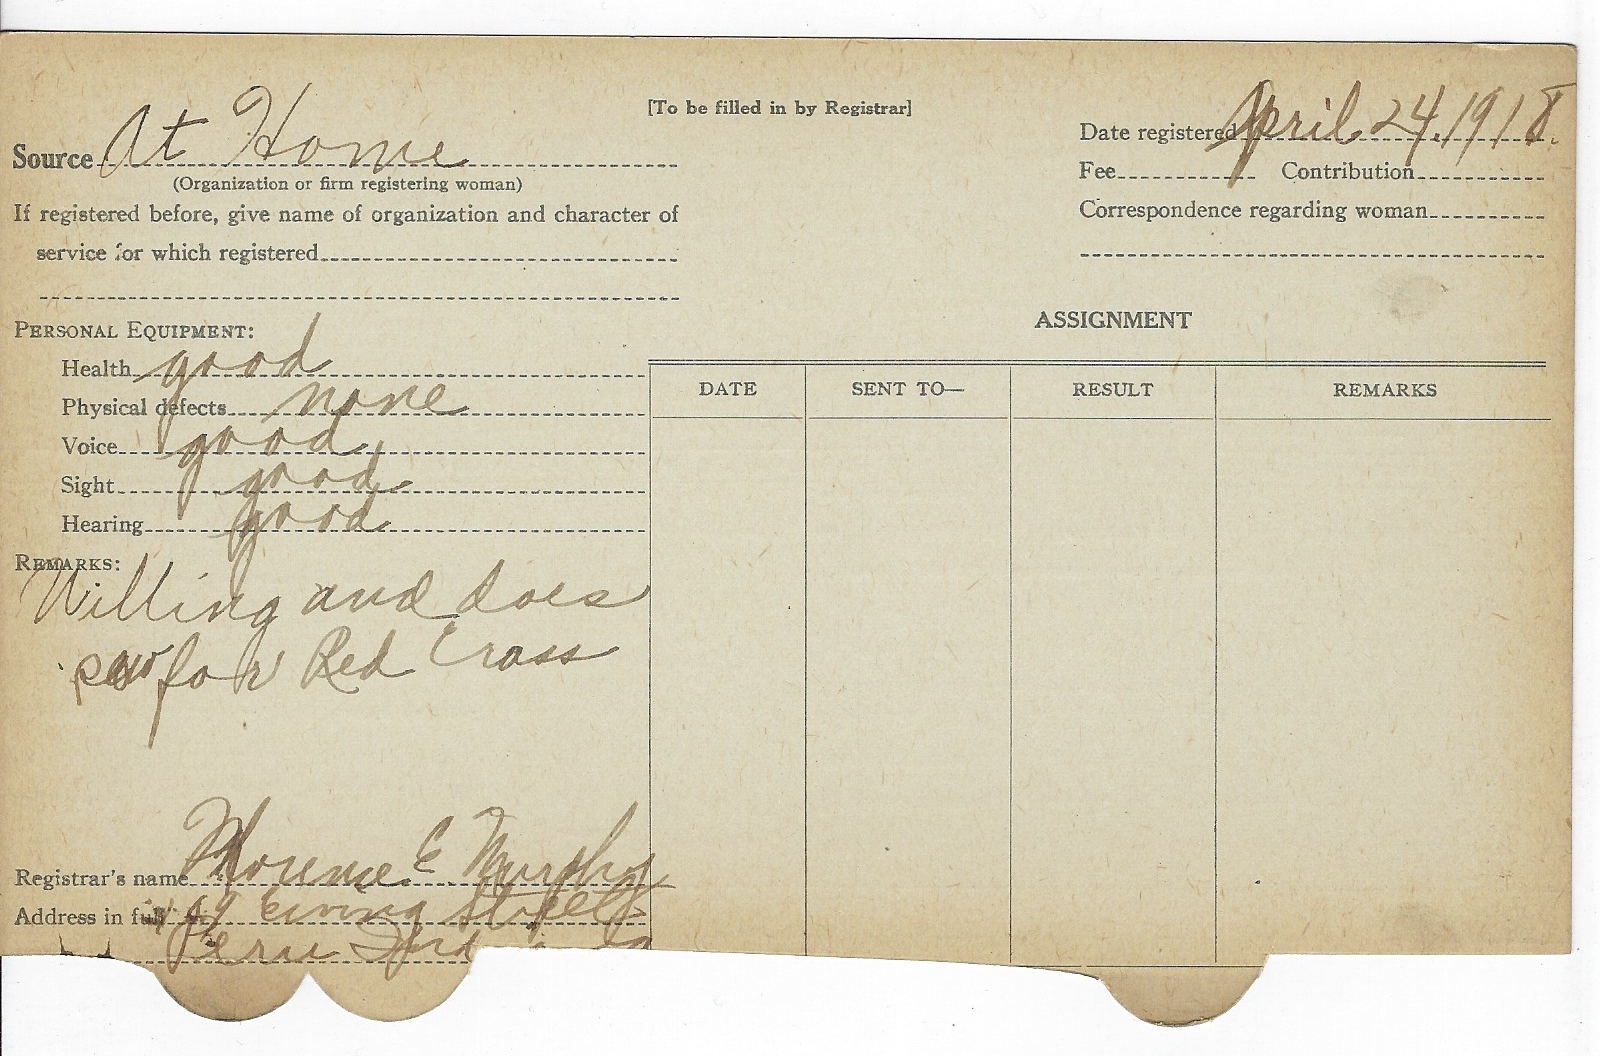 [To be filled in by Registrar]
Source At Home
(Organization or firm registering woman)
If registered before, give name of organization and character of
service for which registered
Date registered April 24, 1918.
Fee Contribution
Correspondence regarding woman
PERSONAL EQUIPMENT:
Health good
Physical defects none
Voice good
Sight good
Hearing good
REMARKS:
Willing and does
for Red Cross
Registrar's name Florence E. Murphy
Address in full Ewing Street
Peru
ASSIGNMENT
DATE SENT TO— RESULT REMARKS